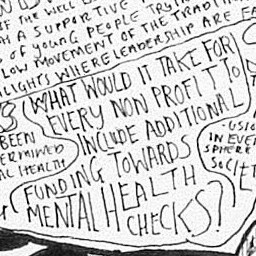 OF THE WELL
A SUPPORTIVE
OF YOUNG PEOPLE TRYIN
LOW MOVEMENT OF THE TRADITION
HLIGHTS WHERE LEADERSHIP ARE
WHAT WOULD IT TAKE FOR
EVERY NON PROFIT TO
INCLUDE ADDITIONAL
FUNDING TOWARDS
MENTAL HEALTH
CHECKS?
BEEN
ERMINED
AL HEALTH
USIO
IN EVE
SPHERE
SOCIET